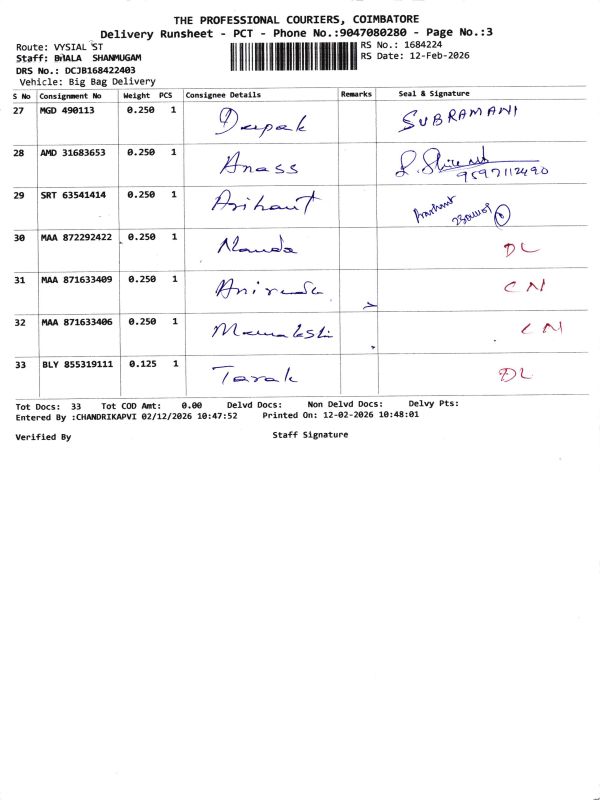 THE PROFESSIONAL COURIERS, COIMBATORE
Delivery Runsheet - PCT - Phone No.:9047080280 - Page No.:3
Route: VYSIAL ST
RS No.: 1684224
Staff: BALA SHANMUGAM
RS Date: 12-Feb-2026
DRS No.: DCJB168422403
Vehicle: Big Bag Delivery
S No Consignment No Weight PCS Consignee Details Remarks Seal & Signature
27 MGD 490113 0.250 1 Deepak SUBRAMANI
28 AMD 31683653 0.250 1 Anass
9597112490
29 SRT 63541414 0.250 1 Arihant
30 MAA 872292422 0.250 1 Nanda DL
31 MAA 871633409 0.250 1 CN
32 MAA 871633406 0.250 1 CN
33 BLY 855319111 0.125 1 Tarak DL
Tot Docs: 33 Tot COD Amt: 0.00 Delvd Docs: Non Delvd Docs: Delvy Pts:
Entered By :CHANDRIKAPVI 02/12/2026 10:47:52 Printed On: 12-02-2026 10:48:01
Verified By Staff Signature